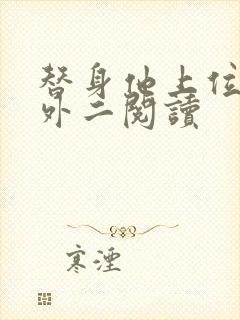 替身他上位
外二閱讀
寒湮